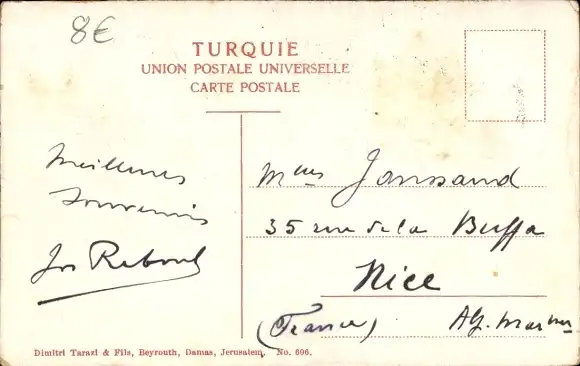 8€
TURQUIE
UNION POSTALE UNIVERSELLE
CARTE POSTALE
Meilleurs
Souvenirs
Jos Reboul
Mme Joussaud
35 rue de la Buffa
Nice
(France) Alp. Marmes
Dimitri Tarazi & Fils, Beyrouth, Damas, Jerusalem. No. 696.